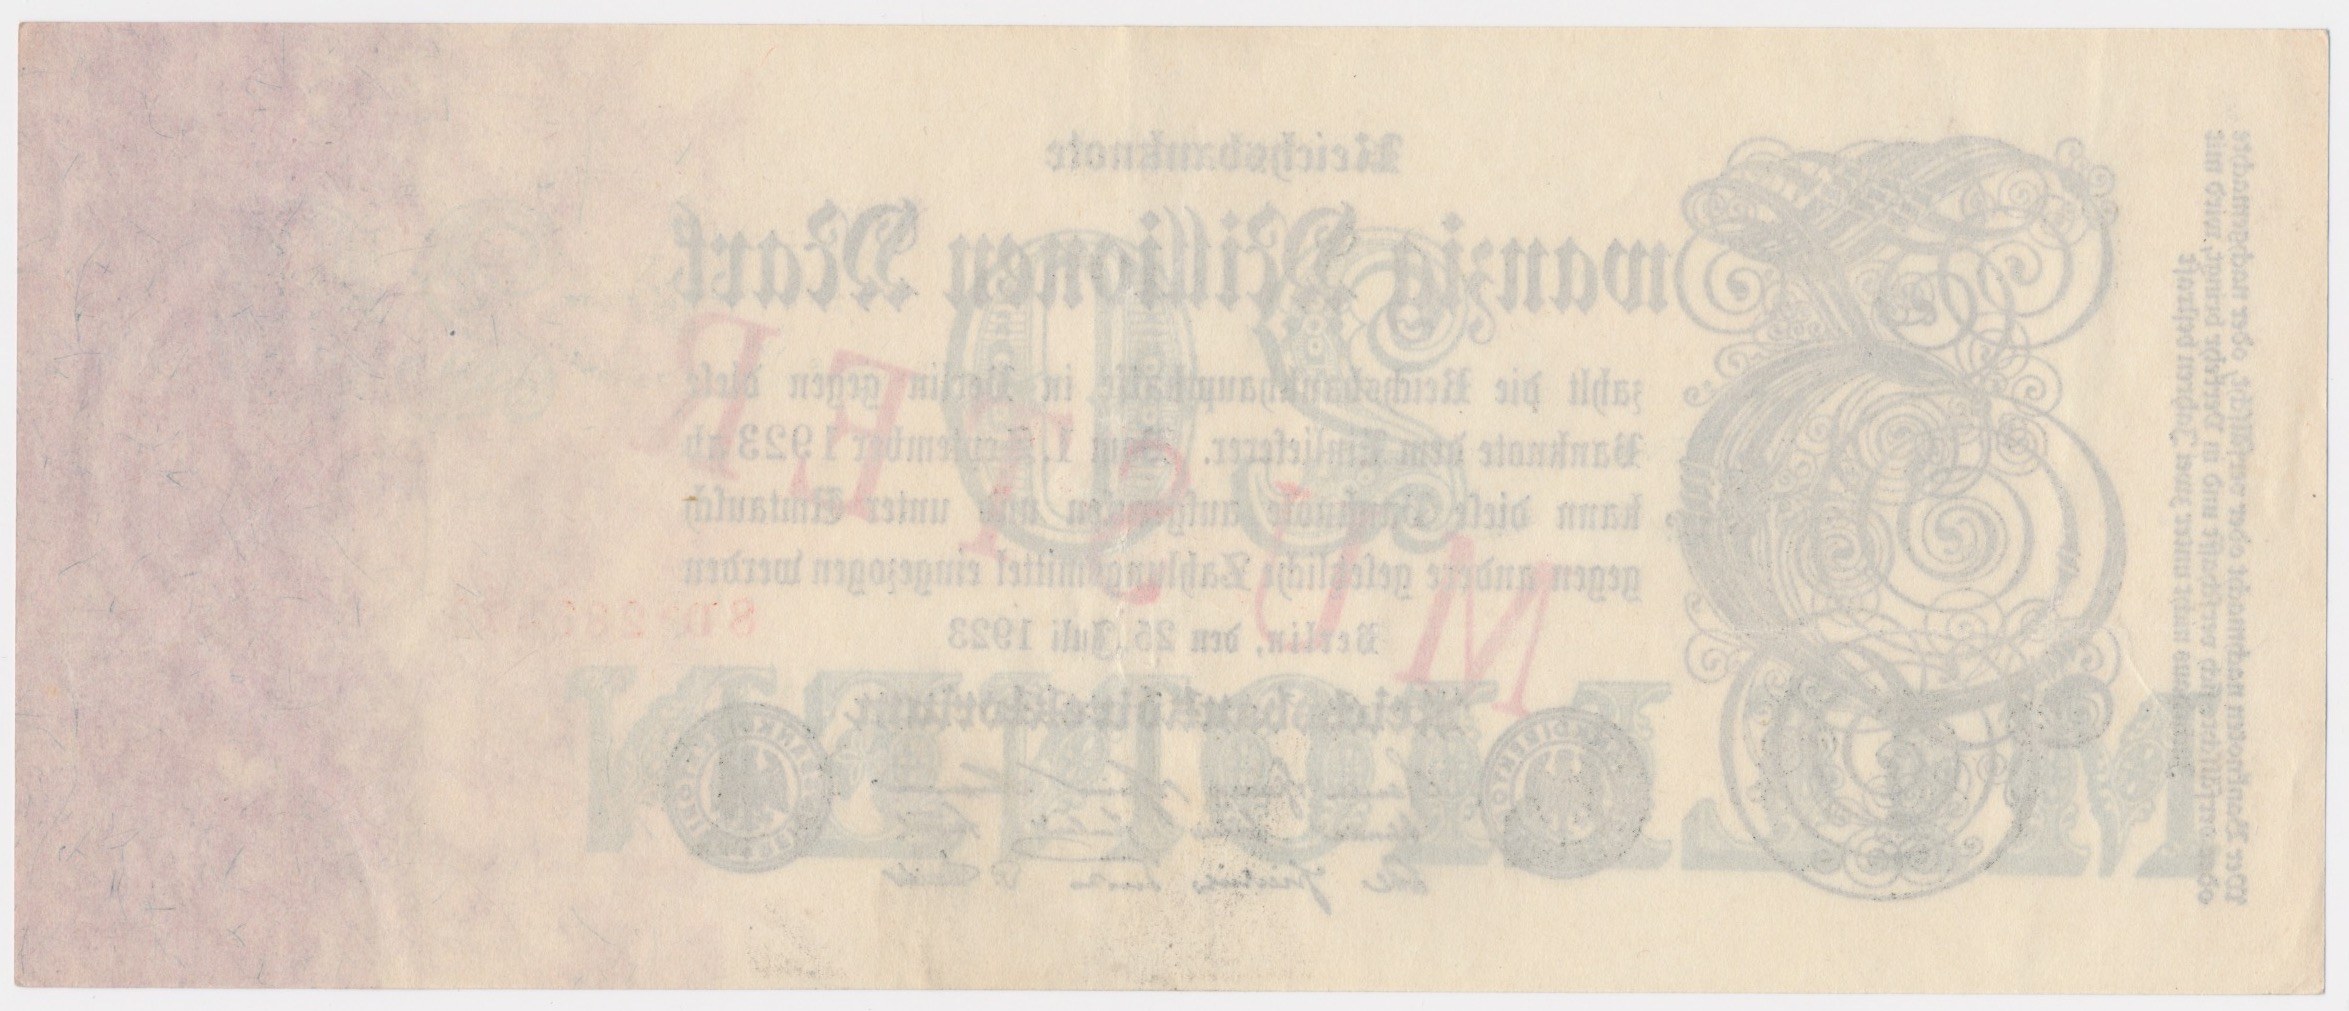 Reichsbanknote
Zwanzig Millionen Mark
zahlt die Reichsbankhauptkasse in Berlin gegen diese
Banknote dem Einlieferer. Vom 1. September 1923 ab
kann diese Banknote aufgerufen und unter Umtausch
gegen andere gesetzliche Zahlungsmittel eingezogen werden
Berlin, den 25. Juli 1923
Reichsbankdirektorium
MUSTER
20
MILLIONEN
Wer Banknoten nachmacht oder verfälscht, oder nachgemachte
oder verfälschte sich verschafft und in Verkehr bringt, wird mit
Zuchthaus nicht unter zwei Jahren bestraft